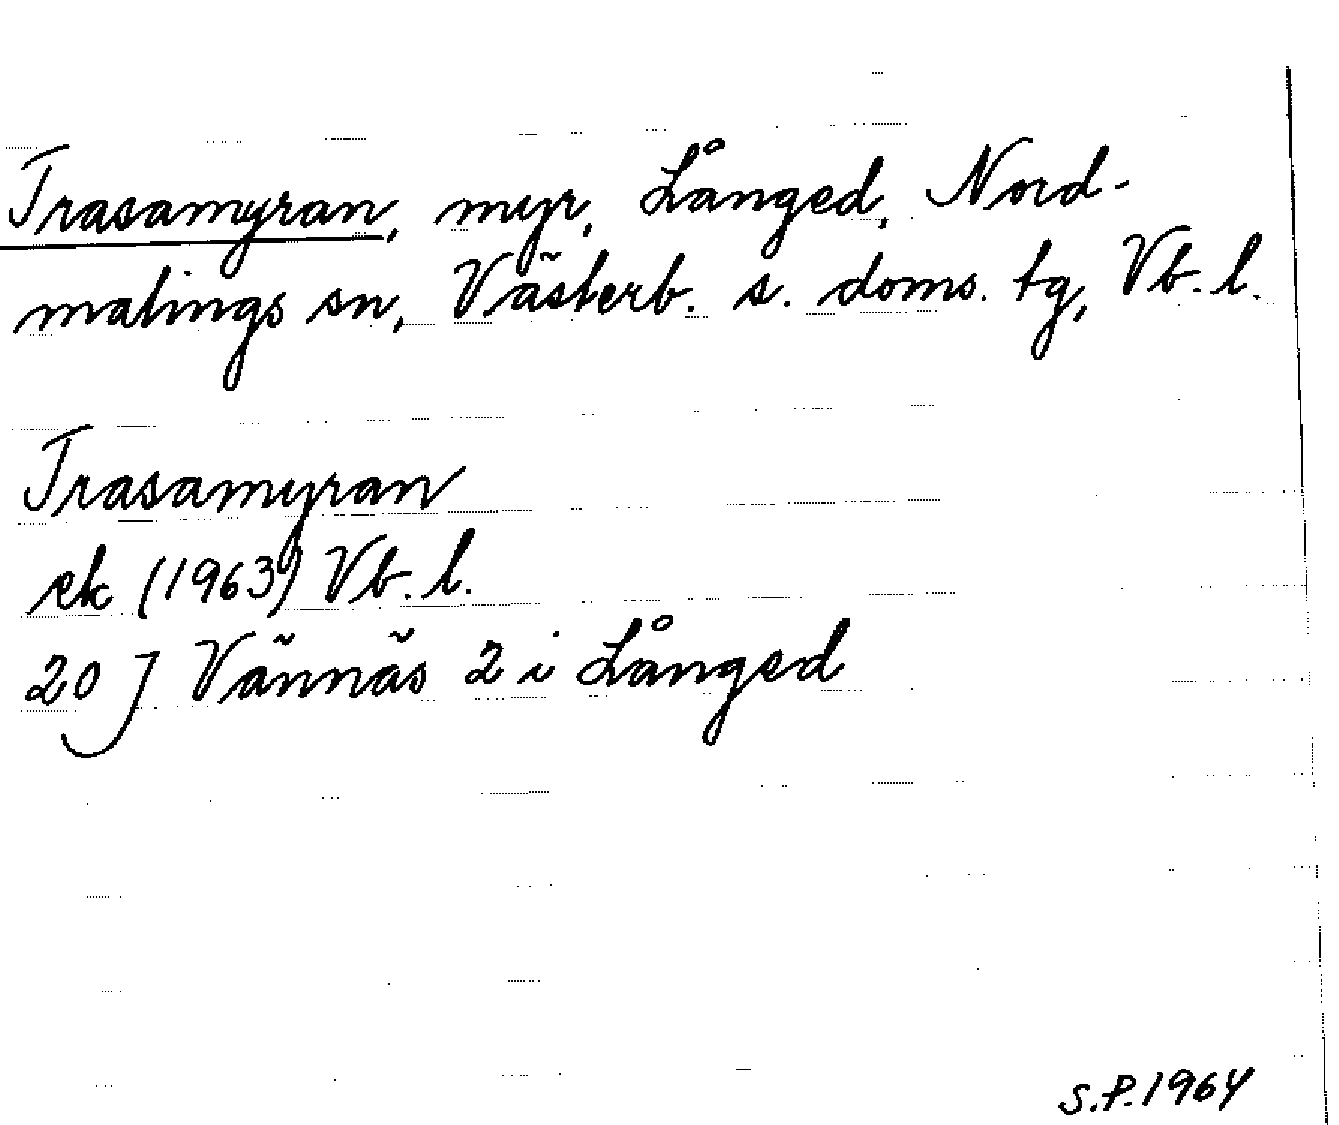 Trasamyran, myr, Långed, Nord-
malings sn, Västerb. s. doms. tg, Vb. l.
Trasamyran
ek (1963) Vb. l.
20 J Vännäs 2 i Långed
S.P. 1964